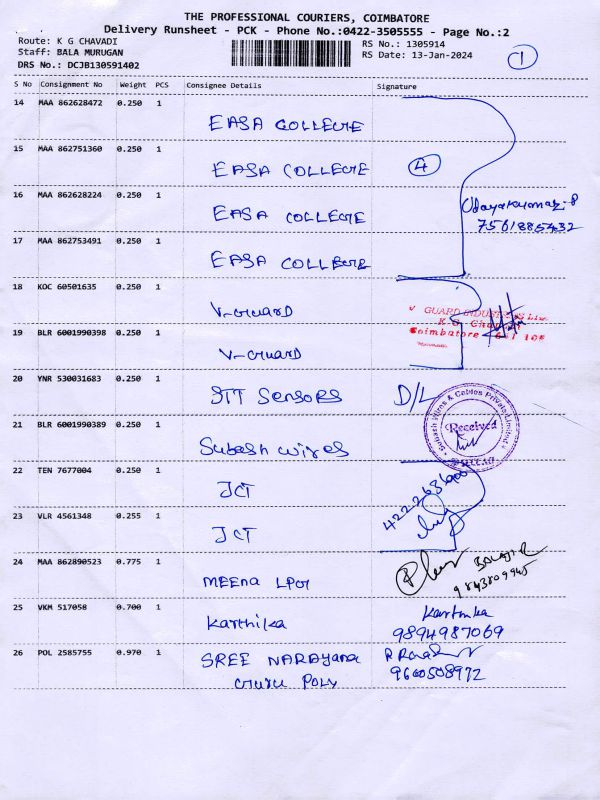 THE PROFESSIONAL COURIERS, COIMBATORE
Delivery Runsheet - PCK - Phone No.:0422-3505555 - Page No.:2
Route: K G CHAVADI RS No.: 1305914
Staff: BALA MURUGAN RS Date: 13-Jan-2024
DRS No.: DCJB130591402 1
S No Consignment No Weight PCS Consignee Details Signature
14 MAA 862628472 0.250 1 EASA COLLEGE
15 MAA 862751360 0.250 1 EASA COLLEGE 4
16 MAA 862628224 0.250 1 EASA COLLEGE
7561885432
17 MAA 862753491 0.250 1 EASA COLLEGE
18 KOC 60501635 0.250 1 V-Guard
GUARD INDUSTRIES Ltd.
K.G. Chavadi
Coimbatore
19 BLR 6001990398 0.250 1 V-Guard
20 YNR 530031683 0.250 1 STT Sensors D/L
Subash Wires & Cables Private Limited
Received
21 BLR 6001990389 0.250 1 Subash wires
22 TEN 7677004 0.250 1 JCT
23 VLR 4561348 0.255 1 JCT
24 MAA 862890523 0.775 1 MEEna LPG BALAJI
9843809945
25 VKM 517058 0.700 1 Karthika Karthika
9894987069
26 POL 2585755 0.970 1 SREE NARAyana
Guru POLY 9600508972